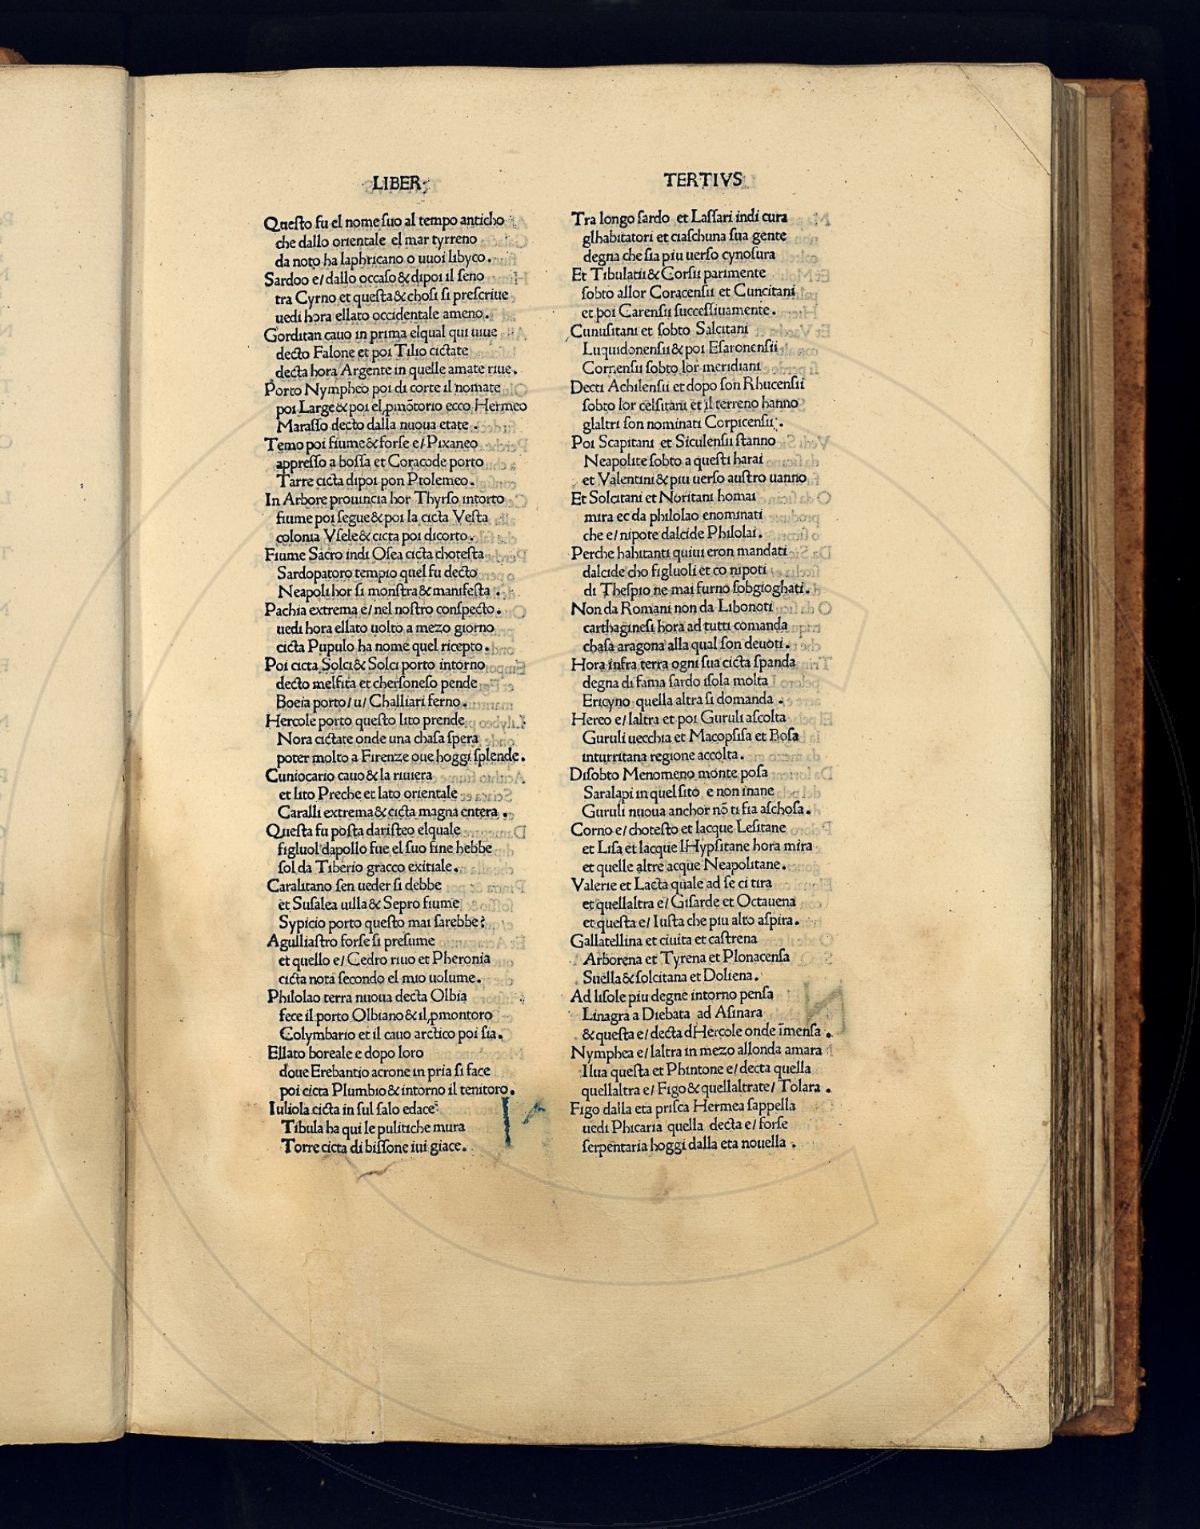 LIBER
TERTIVS
Questo fu el nome suo al tempo anticho
che dallo orientale el mar tyrreno
da noto ha laphricano o uuoi libyco.
Sardoo e/ dallo occaso & dipoi il seno
tra Cyrno et questa & chosi si prescriue
uedi hora ellato occidentale ameno.
Gorditan cauo in prima elqual qui uiue
decto Falone et poi Tilio cictate
decta hora Argente in quelle amate riue.
Porto Nympheo poi di corte il nomate
poi Large & poi el ꝓmōtorio ecco Hermeo
Marasso decto dalla nuoua etate.
Temo poi fiume & forse e/ Pixaneo
appresso a bossa et Coracode porto
Tarre cicta dipoi pon Ptolemeo.
In Arbore prouincia hor Thyrso intorto
fiume poi segue & poi la cicta Vesta
colonia Vsele & cicta poi dicorto.
Fiume Sacro indi Osea cicta chotesta
Sardopatoro tempio quel fu decto
Neapoli hor si monstra & manifesta.
Pachia extrema e/ nel nostro conspecto.
uedi hora ellato uolto a mezo giorno
cicta Pupulo ha nome quel ricepto.
Poi cicta Solci & Solci porto intorno
decto melfita et chersoneso pende
Boeia porto/u/ Challiari ferno.
Hercole porto questo lito prende
Nora cictate onde una chasa spera
poter molto a Firenze oue hoggi splende.
Cuniocario cauo & la riuiera
et lito Preche et lato orientale
Caralli extrema & cicta magna entera.
Questa fu posta daristeo elquale
figluol dapollo fue el suo fine hebbe
sol da Tiberio gracco exitiale.
Caralitano sen ueder si debbe
et Susalea uilla & Sepro fiume
Sypicio porto questo mai sarebbe?
Agulliastro forse si presume
et quello e/ Cedro riuo et Pheronia
cicta nota secondo el mio uolume.
Philolao terra nuoua decta Olbia
fece il porto Olbiano & il ꝓmontoro
Colymbario et il cauo arctico poi sia.
Ellato boreale e dopo loro
doue Erebantio acrone in pria si face
poi cicta Plumbio & intorno il tenitoro.
Iuliola cicta in sul salo edace
Tibula ha qui le pulitiche mura
Torre cicta di bissone iui giace.
Tra longo sardo et Lassari indi cura
glhabitatori et ciaschuna sua gente
degna che sia piu uerso cynosura
Et Tibulatii & Corsii parimente
sobto allor Coracensii et Cuncitani
et poi Carensii successiuamente.
Cunusitani et sobto Salcitani
Luquidonensii & poi Esaronensii
Cornensii sobto lor meridiani
Decti Achilensii et dopo son Rhucensii
sobto lor celsitani et il terreno hanno
glaltri son nominati Corpicensii.
Poi Scapitani et Siculensii stanno
Neapolite sobto a questi harai
et Valentini & piu uerso austro uanno
Et Solcitani et Noritani homai
mira ec da philolao enominati
che e/ nipote dalcide Philolai.
Perche habitanti quiui eron mandati
dalcide cho figluoli et co nipoti
di Thespio ne mai furno sobgioghati.
Non da Romani non da Libonoti
carthaginesi hora ad tutti comanda
chasa aragona alla qual son deuoti.
Hora infra terra ogni sua cicta spanda
degna di fama sardo isola molta
Ericyno quella altra si domanda.
Hereo e/ laltra et poi Guruli ascolta
Guruli uecchia et Macopsisa et Bosa
inturritana regione accolta.
Disobto Menomeno monte posa
Saralapi in quel sito e non inane
Guruli nuoua anchor nō ti fia aschosa.
Corno e/ chotesto et lacque Lesitane
et Lisa et lacque lHypsitane hora mira
et quelle altre acque Neapolitane.
Valerie et Lacta quale ad se ci tira
et quellaltra e/ Gisarde et Octauena
et questa e/ Iusta che piu alto aspira.
Gallatellina et ciuita et castrena
Arborena et Tyrena et Plonacensa
Suella & solcitana et Doliena.
Ad lisole piu degne intorno pensa
Linagra a Diebata ad Asinara
& questa e/ decta dHercole onde īmensa.
Nymphea e/ laltra in mezo allonda amara
Ilua questa et Phintone e/ decta quella
quellaltra e/ Figo & quellaltrate/ Tolara.
Figo dalla eta prisca Hermea sappella
uedi Phicaria quella decta e/ forse
serpentaria hoggi dalla eta nouella.